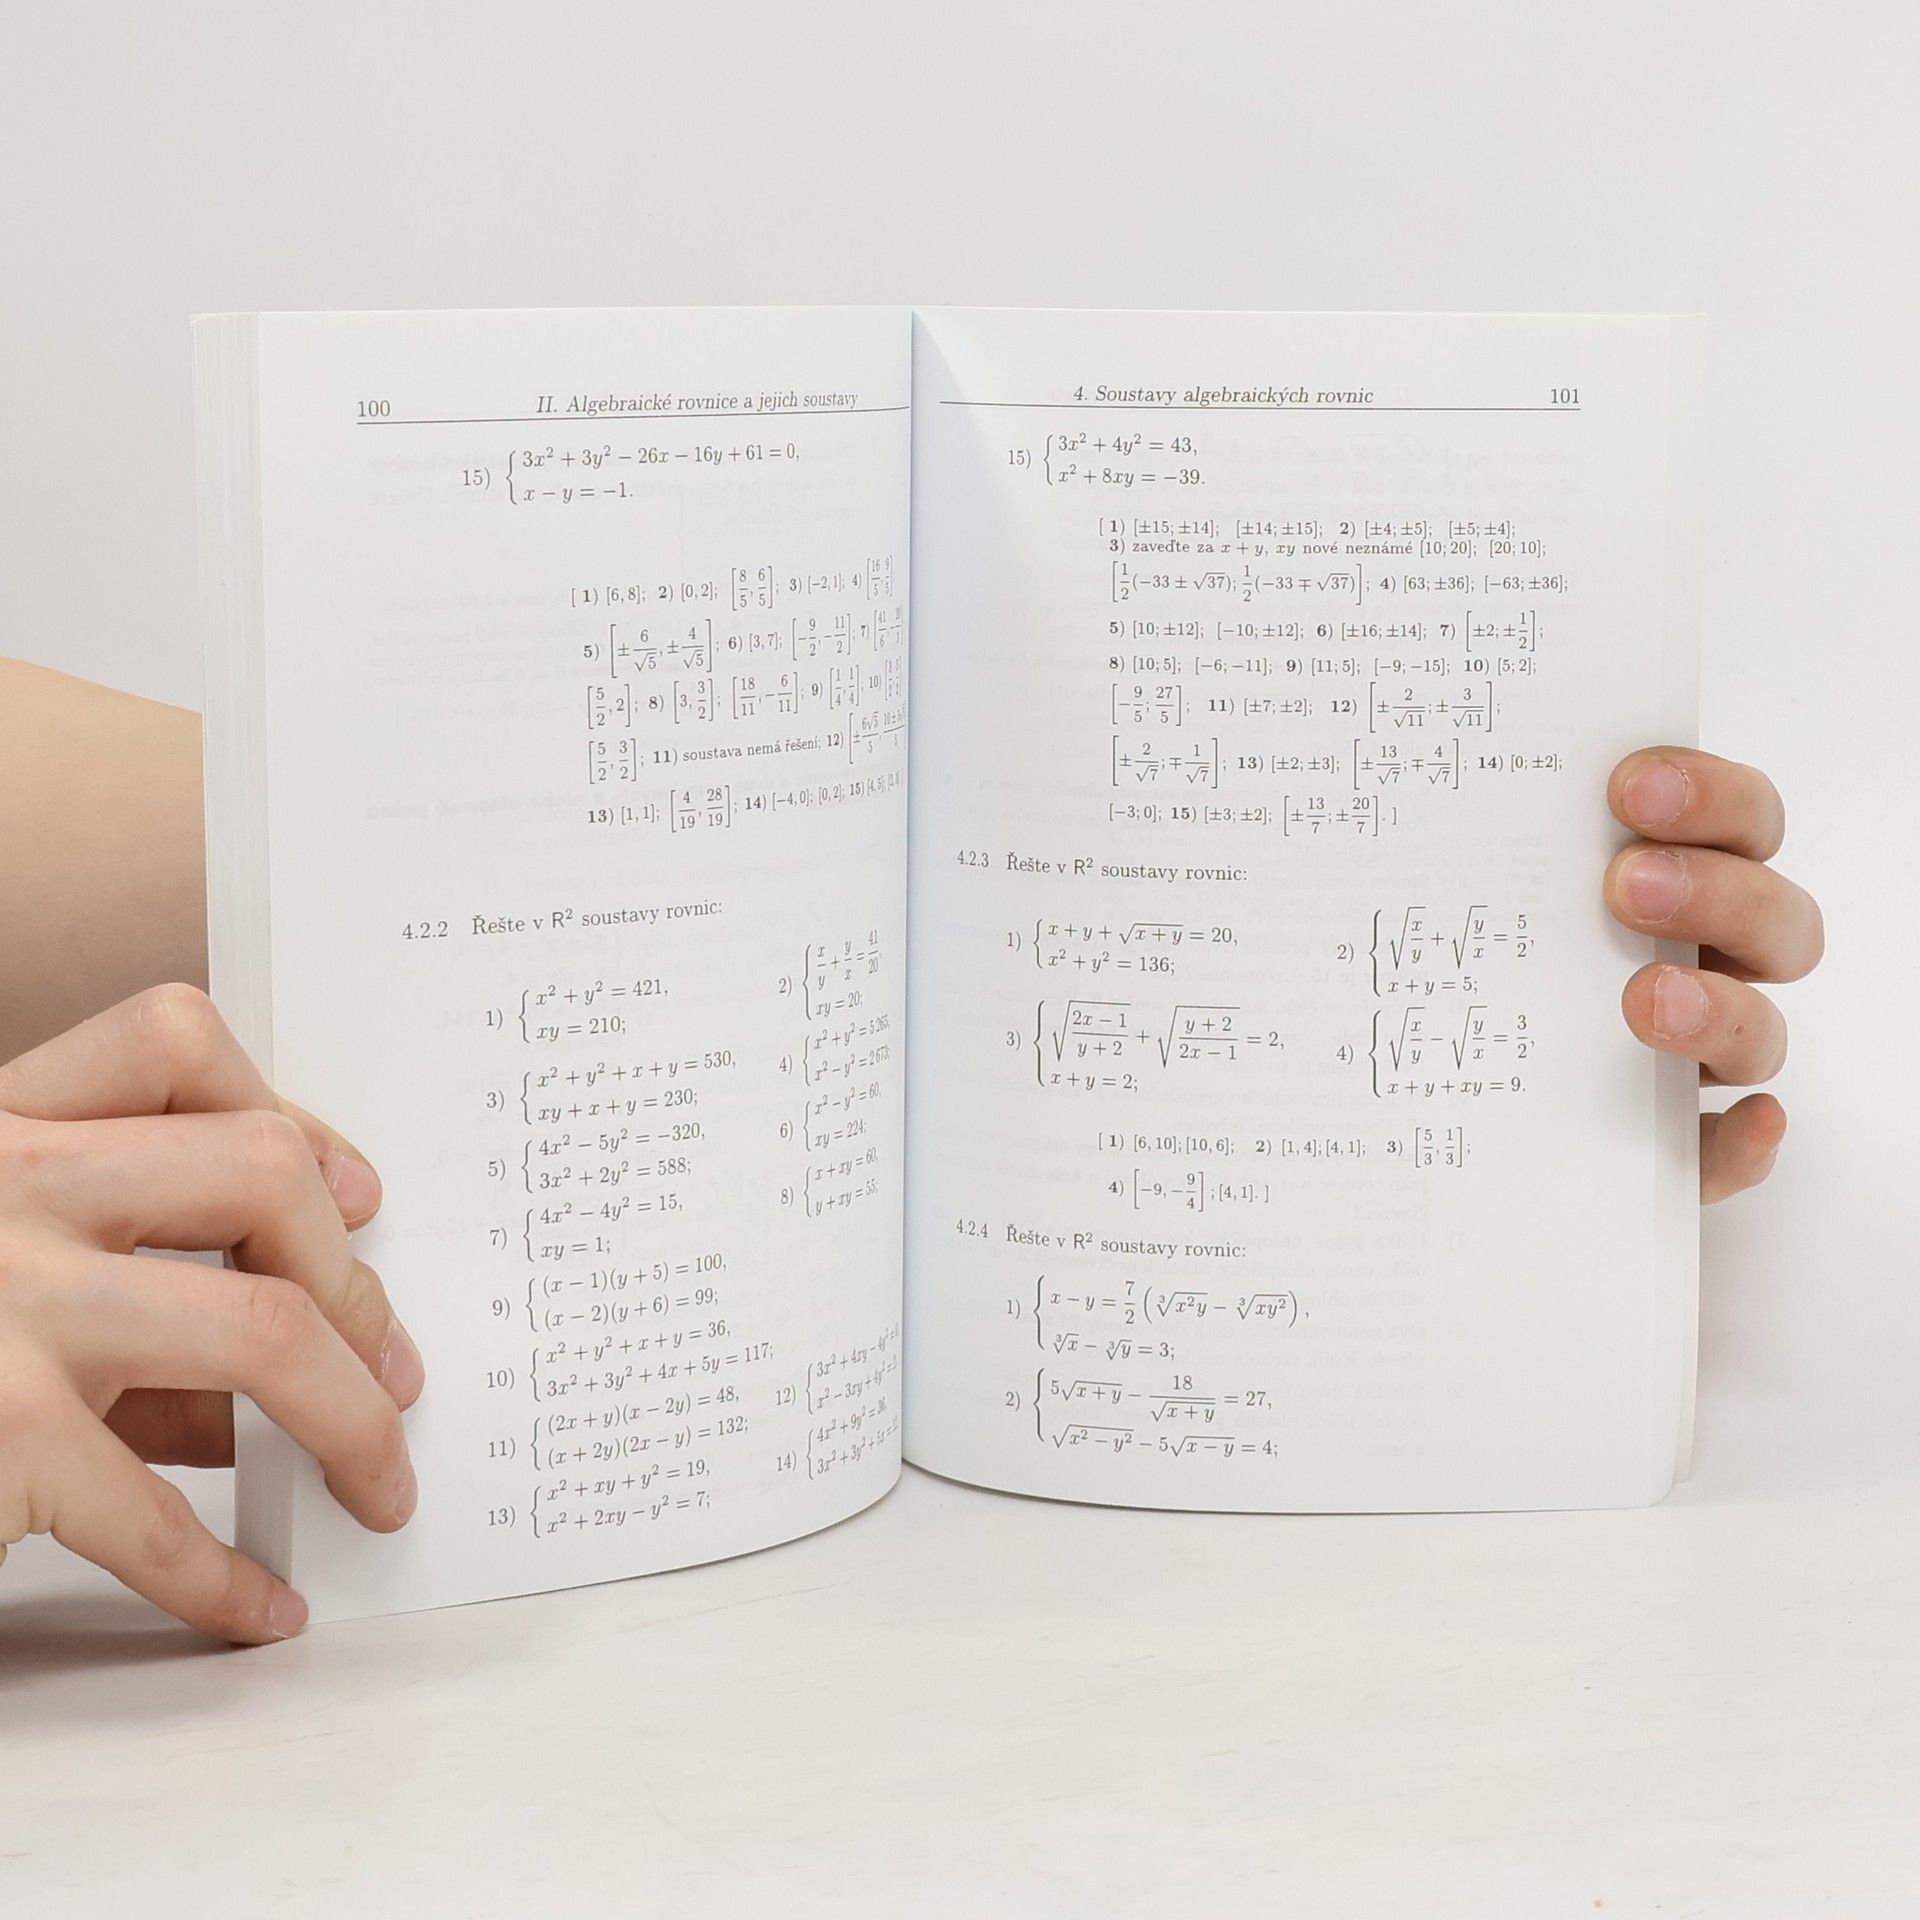 100 II. Algebraické rovnice a jejich soustavy
15) { 3x² + 3y² − 26x − 16y + 61 = 0,
x − y = −1.
[ 1) [6, 8]; 2) [0, 2]; [8/5, 6/5]; 3) [−2, 1]; 4) [16/5, 9/5];
5) [±6/√5, ±4/√5]; 6) [3, 7]; [−9/2, −11/2]; 7)
[5/2, 2]; 8) [3, 3/2]; [18/11, −6/11]; 9) [1/4, 1/4]; 10)
[5/2, 3/2]; 11) soustava nemá řešení; 12)
13) [1, 1]; [4/19, 28/19]; 14) [−4, 0]; [0, 2]; 15) [4, 5];
4.2.2 Řešte v R² soustavy rovnic:
1) { x² + y² = 421,
xy = 210;
2) { x/y + y/x = 41/20,
xy = 20;
3) { x² + y² + x + y = 530,
xy + x + y = 230;
4) { x² + y² = 5 265,
x² − y² = 2 673;
5) { 4x² − 5y² = −320,
3x² + 2y² = 588;
6) { x² − y² = 60,
xy = 224;
7) { 4x² − 4y² = 15,
xy = 1;
8) { x + xy = 60,
y + xy = 55;
9) { (x − 1)(y + 5) = 100,
(x − 2)(y + 6) = 99;
10) { x² + y² + x + y = 36,
3x² + 3y² + 4x + 5y = 117;
11) { (2x + y)(x − 2y) = 48,
(x + 2y)(2x − y) = 132;
12) { 3x² + 4xy − 4y² =
x² − 3xy + 4y² =
13) { x² + xy + y² = 19,
x² + 2xy − y² = 7;
14) { 4x² + 9y² = 36,
3x² + 3y² + 5x =
4. Soustavy algebraických rovnic 101
15) { 3x² + 4y² = 43,
x² + 8xy = −39.
[ 1) [±15; ±14]; [±14; ±15]; 2) [±4; ±5]; [±5; ±4];
3) zaveďte za x + y, xy nové neznámé [10; 20]; [20; 10];
[1/2(−33 ± √37); 1/2(−33 ∓ √37)]; 4) [63; ±36]; [−63; ±36];
5) [10; ±12]; [−10; ±12]; 6) [±16; ±14]; 7) [±2; ±1/2];
8) [10; 5]; [−6; −11]; 9) [11; 5]; [−9; −15]; 10) [5; 2];
[−9/5; 27/5]; 11) [±7; ±2]; 12) [±2/√11; ±3/√11];
[±2/√7; ∓1/√7]; 13) [±2; ±3]; [±13/√7; ∓4/√7]; 14) [0; ±2];
[−3; 0]; 15) [±3; ±2]; [±13/7; ±20/7]. ]
4.2.3 Řešte v R² soustavy rovnic:
1) { x + y + √(x + y) = 20,
x² + y² = 136;
2) { √(x/y) + √(y/x) = 5/2,
x + y = 5;
3) { √((2x − 1)/(y + 2)) + √((y + 2)/(2x − 1)) = 2,
x + y = 2;
4) { √(x/y) − √(y/x) = 3/2,
x + y + xy = 9.
[ 1) [6, 10]; [10, 6]; 2) [1, 4]; [4, 1]; 3) [5/3, 1/3];
4) [−9, −9/4]; [4, 1]. ]
4.2.4 Řešte v R² soustavy rovnic:
1) { x − y = 7/2 (∛(x²y) − ∛(xy²)),
∛x − ∛y = 3;
2) { 5√(x + y) − 18/√(x + y) = 27,
√(x² − y²) − 5√(x − y) = 4;